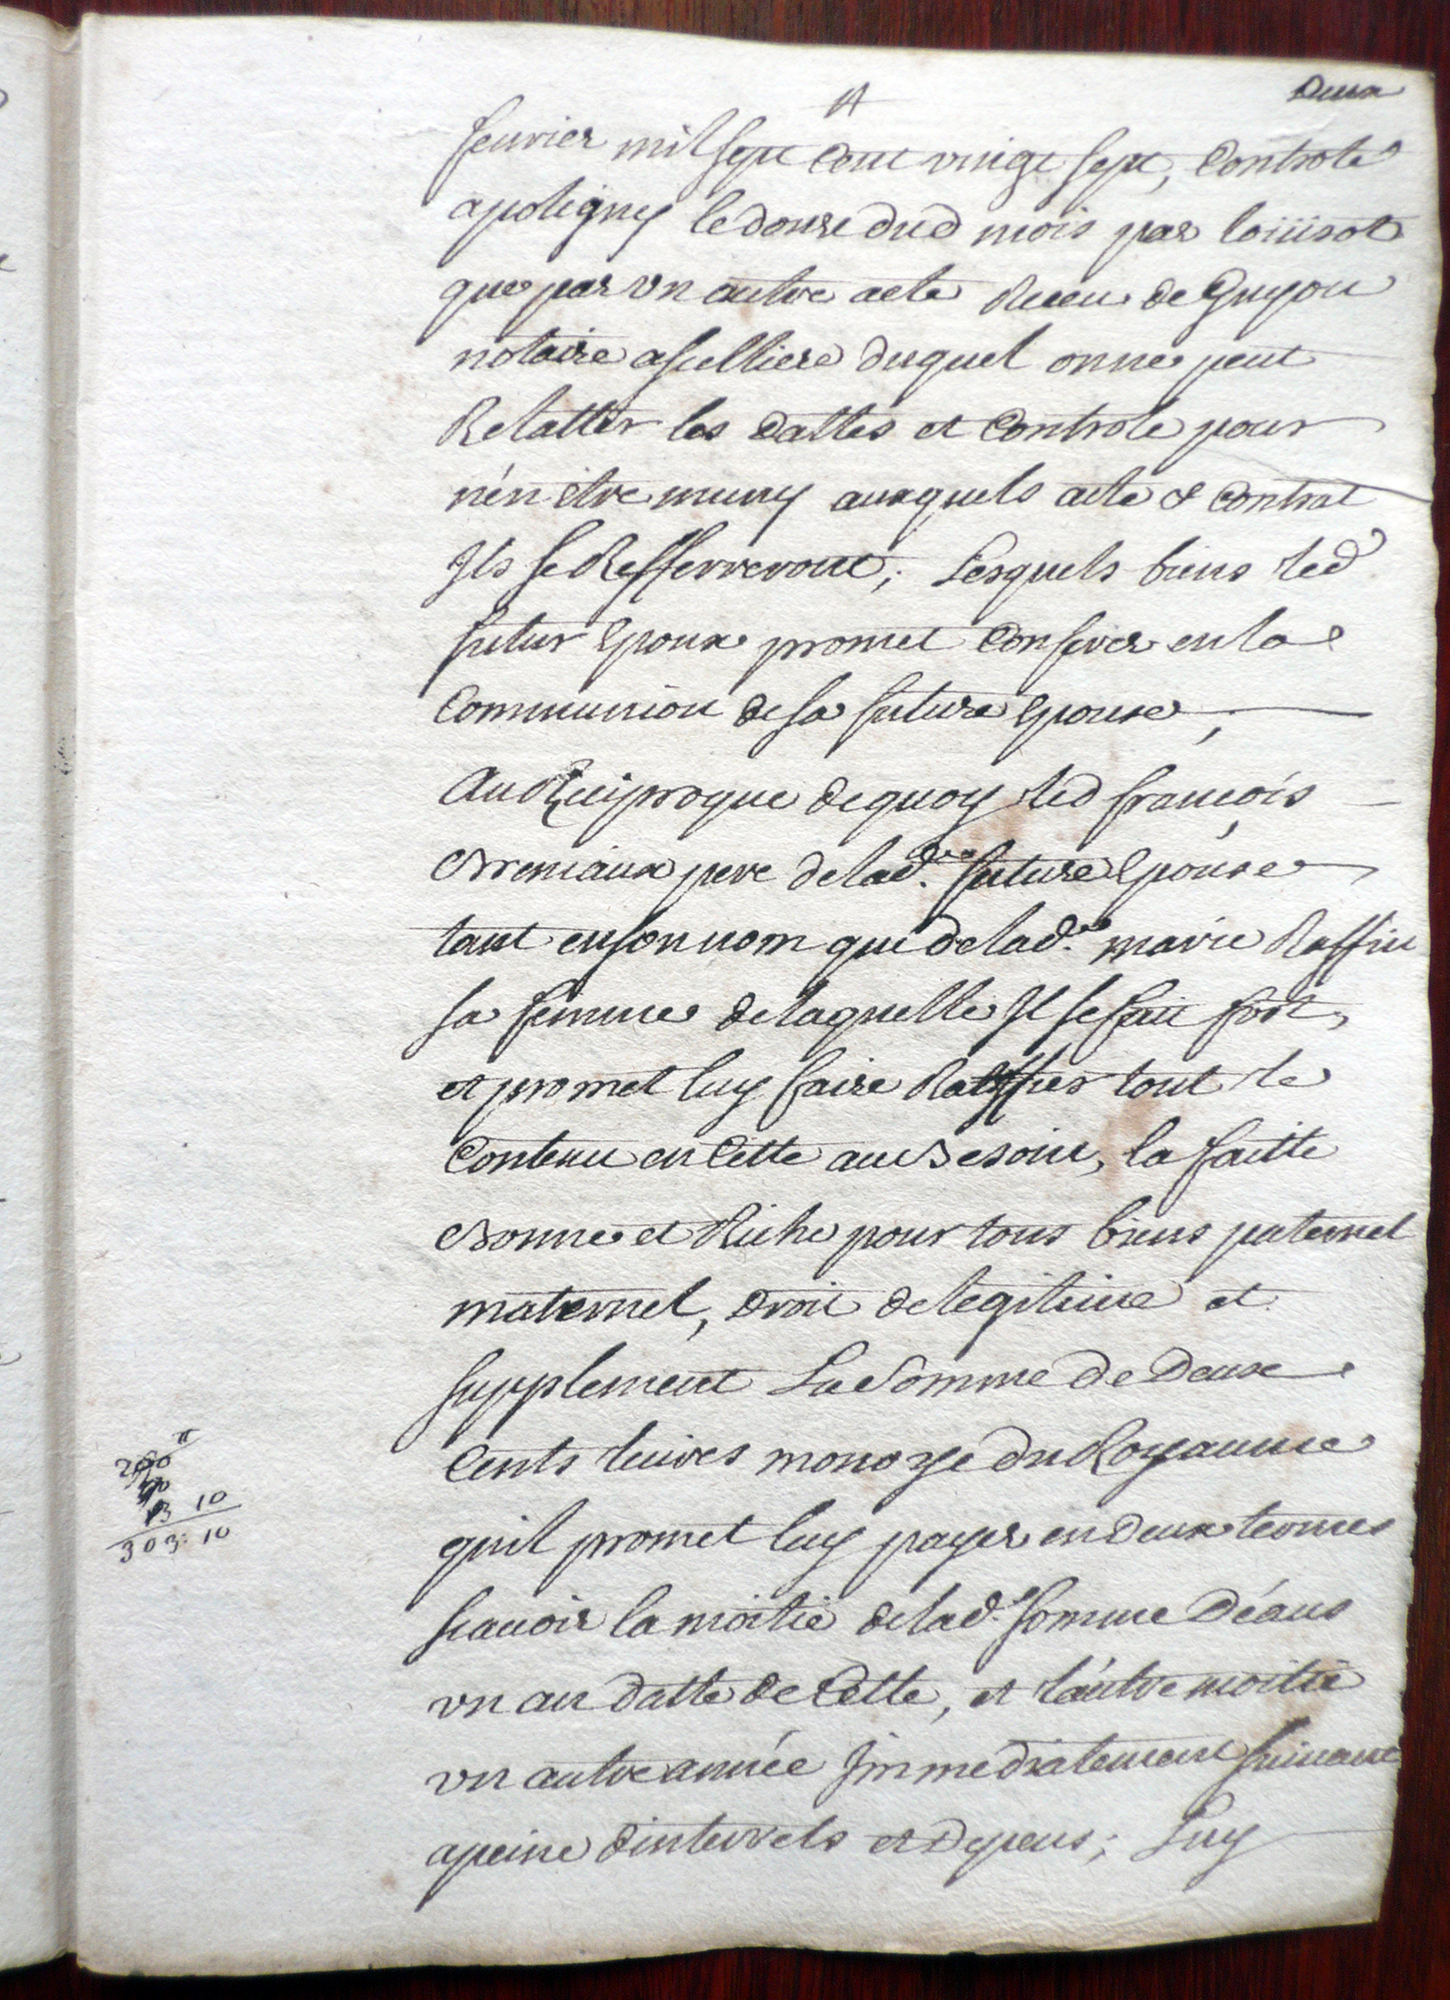 Deux
feurier mil sept Cent vingt sept, Controlé
apoligny ledouze dud mois par loiiisot
que par vn autre acte Receu de Guyon
notaire asellieres duquel onne peut
Relatter les dattes et Controle pour
n'en être muny auxquels acte & Contrat
Ils se Refferreront; Lesquels biens led
futur Epoux promet Conferer en la
Communion de sa future Epouse,
Au Reciproque dequoy led francois
Breniaux pere delad. future Epouse
tant ensonnom que delad.e marie Raffin
sa femme delaquelle Il sefait fort,
et promet luy faire Ratiffier tout le
Contenu en Cette au Besoin, la faitte
Bonne et Riche pour tous biens paternel
maternel, droit delegitime et
supplement La Somme de Deux
Cents livres monoye du Royaume
200 ₶
90
13 10
303: 10
qu'il promet luy payer en deux termes
scauoir la moitié delad.e somme déans
vn an datte de Cette, et l'autre moitié
vn autre année Immediatement suivant
apeine d'interrets et Depens; Luy